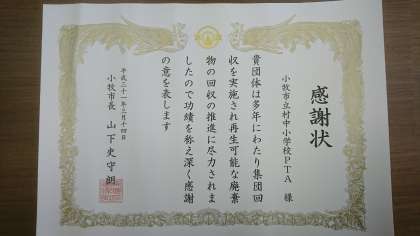 感謝状
小牧市立村中小学校PTA 様
貴団体は多年にわたり集団回
収を実施され再生可能な廃棄
物の回収の推進に尽力されま
したので功績を称え深く感謝
の意を表します
平成二十一年三月十四日
小牧市長 山下史守朗